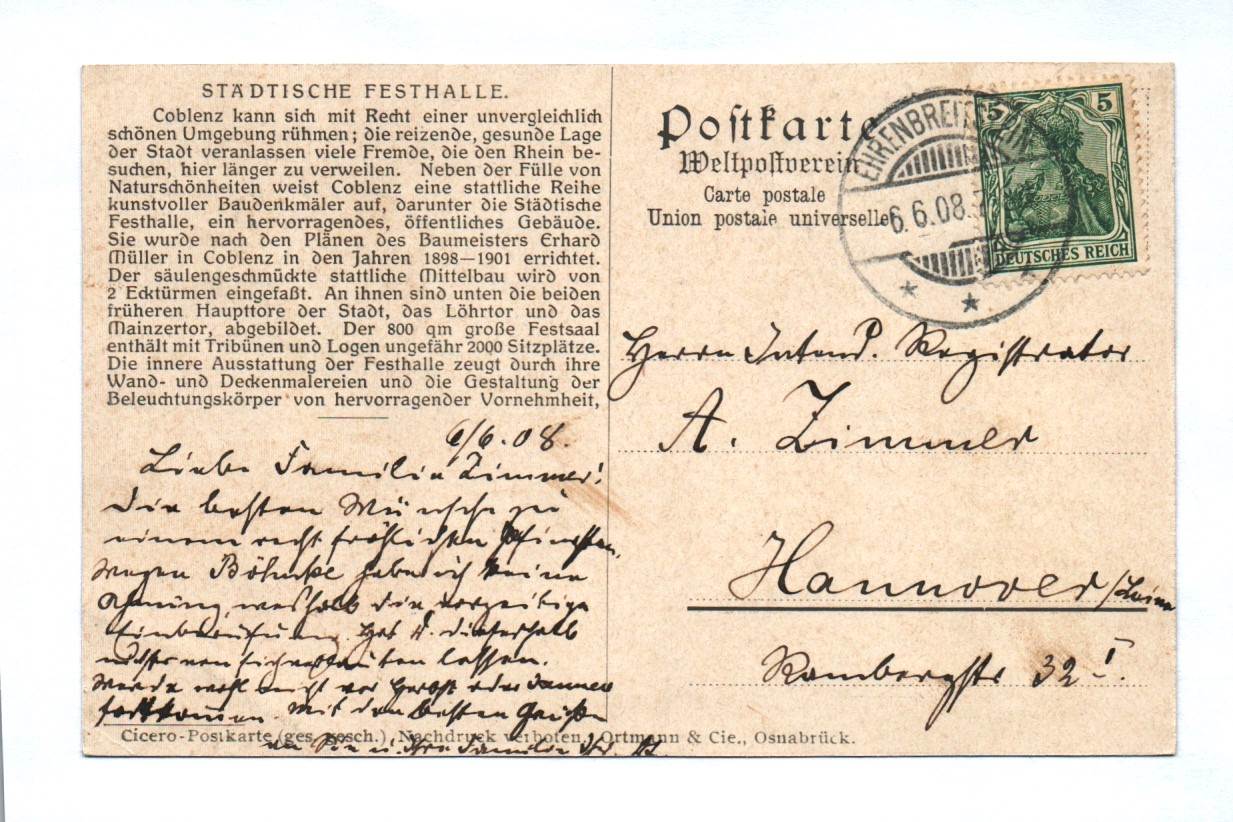 STÄDTISCHE FESTHALLE.
Coblenz kann sich mit Recht einer unvergleichlich
schönen Umgebung rühmen; die reizende, gesunde Lage
der Stadt veranlassen viele Fremde, die den Rhein be-
suchen, hier länger zu verweilen. Neben der Fülle von
Naturschönheiten weist Coblenz eine stattliche Reihe
kunstvoller Baudenkmäler auf, darunter die Städtische
Festhalle, ein hervorragendes, öffentliches Gebäude.
Sie wurde nach den Plänen des Baumeisters Erhard
Müller in Coblenz in den Jahren 1898—1901 errichtet.
Der säulengeschmückte stattliche Mittelbau wird von
2 Ecktürmen eingefaßt. An ihnen sind unten die beiden
früheren Haupttore der Stadt, das Löhrtor und das
Mainzertor, abgebildet. Der 800 qm große Festsaal
enthält mit Tribünen und Logen ungefähr 2000 Sitzplätze.
Die innere Ausstattung der Festhalle zeugt durch ihre
Wand- und Deckenmalereien und die Gestaltung der
Beleuchtungskörper von hervorragender Vornehmheit,
6/6.08.
Liebe Familie Zimmer!
Die besten Wünsche zu
einem recht fröhlichen Pfingsten.
Wegen Böhnke habe ich keine
Ahnung weshalb die vorzeitige
Einberufung. Hat dieserhalb
nichts von sich lassen.
Werde wohl nicht vor Herbst oder Januar
fortkommen. Mit den besten Grüßen
an Sie u. Ihre Familie
Cicero-Postkarte (ges. gesch.), Nachdruck verboten, Ortmann & Cie., Osnabrück.
Postkarte
Weltpostverein
Carte postale
Union postale universelle
EHRENBREITSTEIN
6.6.08.
5 5
DEUTSCHES REICH
Herrn Intend. Registrator
A. Zimmer
Hannover /Leine
Rambergstr 32 I.